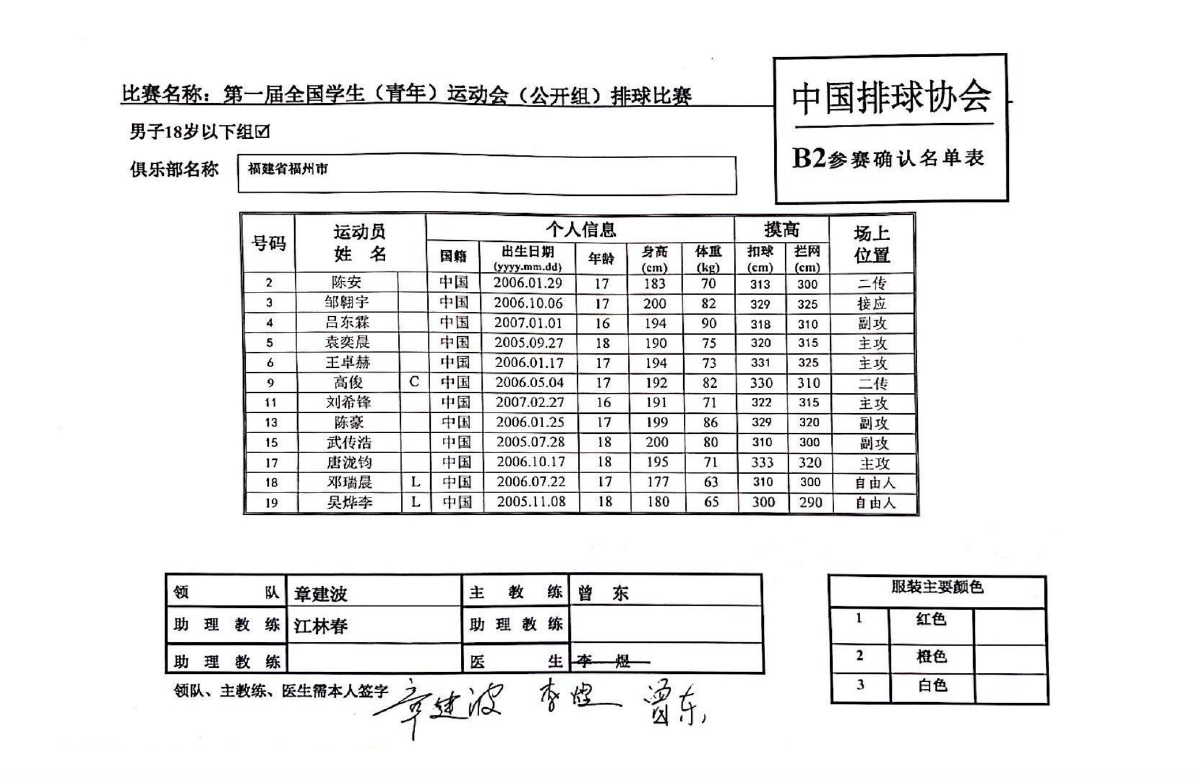 比赛名称：第一届全国学生（青年）运动会（公开组）排球比赛
中国排球协会
B2参赛确认名单表
男子18岁以下组☑
俱乐部名称 福建省福州市
号码 运动员姓名 个人信息 摸高 场上位置
国籍 出生日期(yyyy.mm.dd) 年龄 身高(cm) 体重(kg) 扣球(cm) 拦网(cm)
2 陈安 中国 2006.01.29 17 183 70 313 300 二传
3 邹翱宇 中国 2006.10.06 17 200 82 329 325 接应
4 吕东霖 中国 2007.01.01 16 194 90 318 310 副攻
5 袁奕晨 中国 2005.09.27 18 190 75 320 315 主攻
6 王卓赫 中国 2006.01.17 17 194 73 331 325 主攻
9 高俊 C 中国 2006.05.04 17 192 82 330 310 二传
11 刘希锋 中国 2007.02.27 16 191 71 322 315 主攻
13 陈豪 中国 2006.01.25 17 199 86 329 320 副攻
15 武传浩 中国 2005.07.28 18 200 80 310 300 副攻
17 唐泷钧 中国 2006.10.17 18 195 71 333 320 主攻
18 邓瑞晨 L 中国 2006.07.22 17 177 63 310 300 自由人
19 吴烨李 L 中国 2005.11.08 18 180 65 300 290 自由人
领队 章建波 主教练 曾东
助理教练 江林春 助理教练
助理教练 医生 李煜
领队、主教练、医生需本人签字 章建波 李煜 曾东
服装主要颜色
1 红色
2 橙色
3 白色